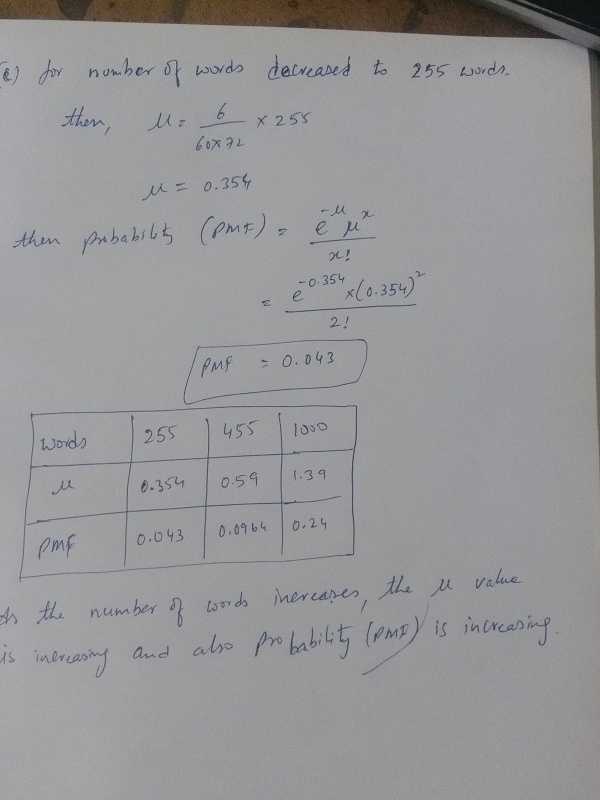 (c) for number of words decreased to 255 words.
then, μ = 6/(60×72) × 255
μ = 0.354
then probability (PMF) = e^-μ μ^x / x!
= e^-0.354 × (0.354)^2 / 2!
PMF = 0.043
words 255 455 1000
μ 0.354 0.59 1.39
PMF 0.043 0.0964 0.24
As the number of words increases, the μ value
is increasing and also probability (PMF) is increasing.